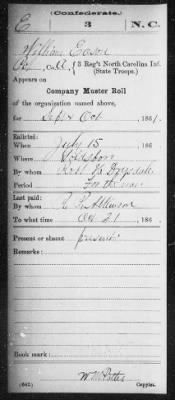 (Confederate.)
E 3 N.C.
William Eason
Pvt, Co. A, 3 Reg't North Carolina Inf.
(State Troops.)
Appears on
Company Muster Roll
of the organization named above,
for Sept & Oct, 1861.
Enlisted:
When July 15, 186
Where Goldsboro
By whom
Period For the war
Last paid:
By whom
To what time Oct 31, 186
Present or absent present
Remarks:
Book mark:
(642) Copyist.